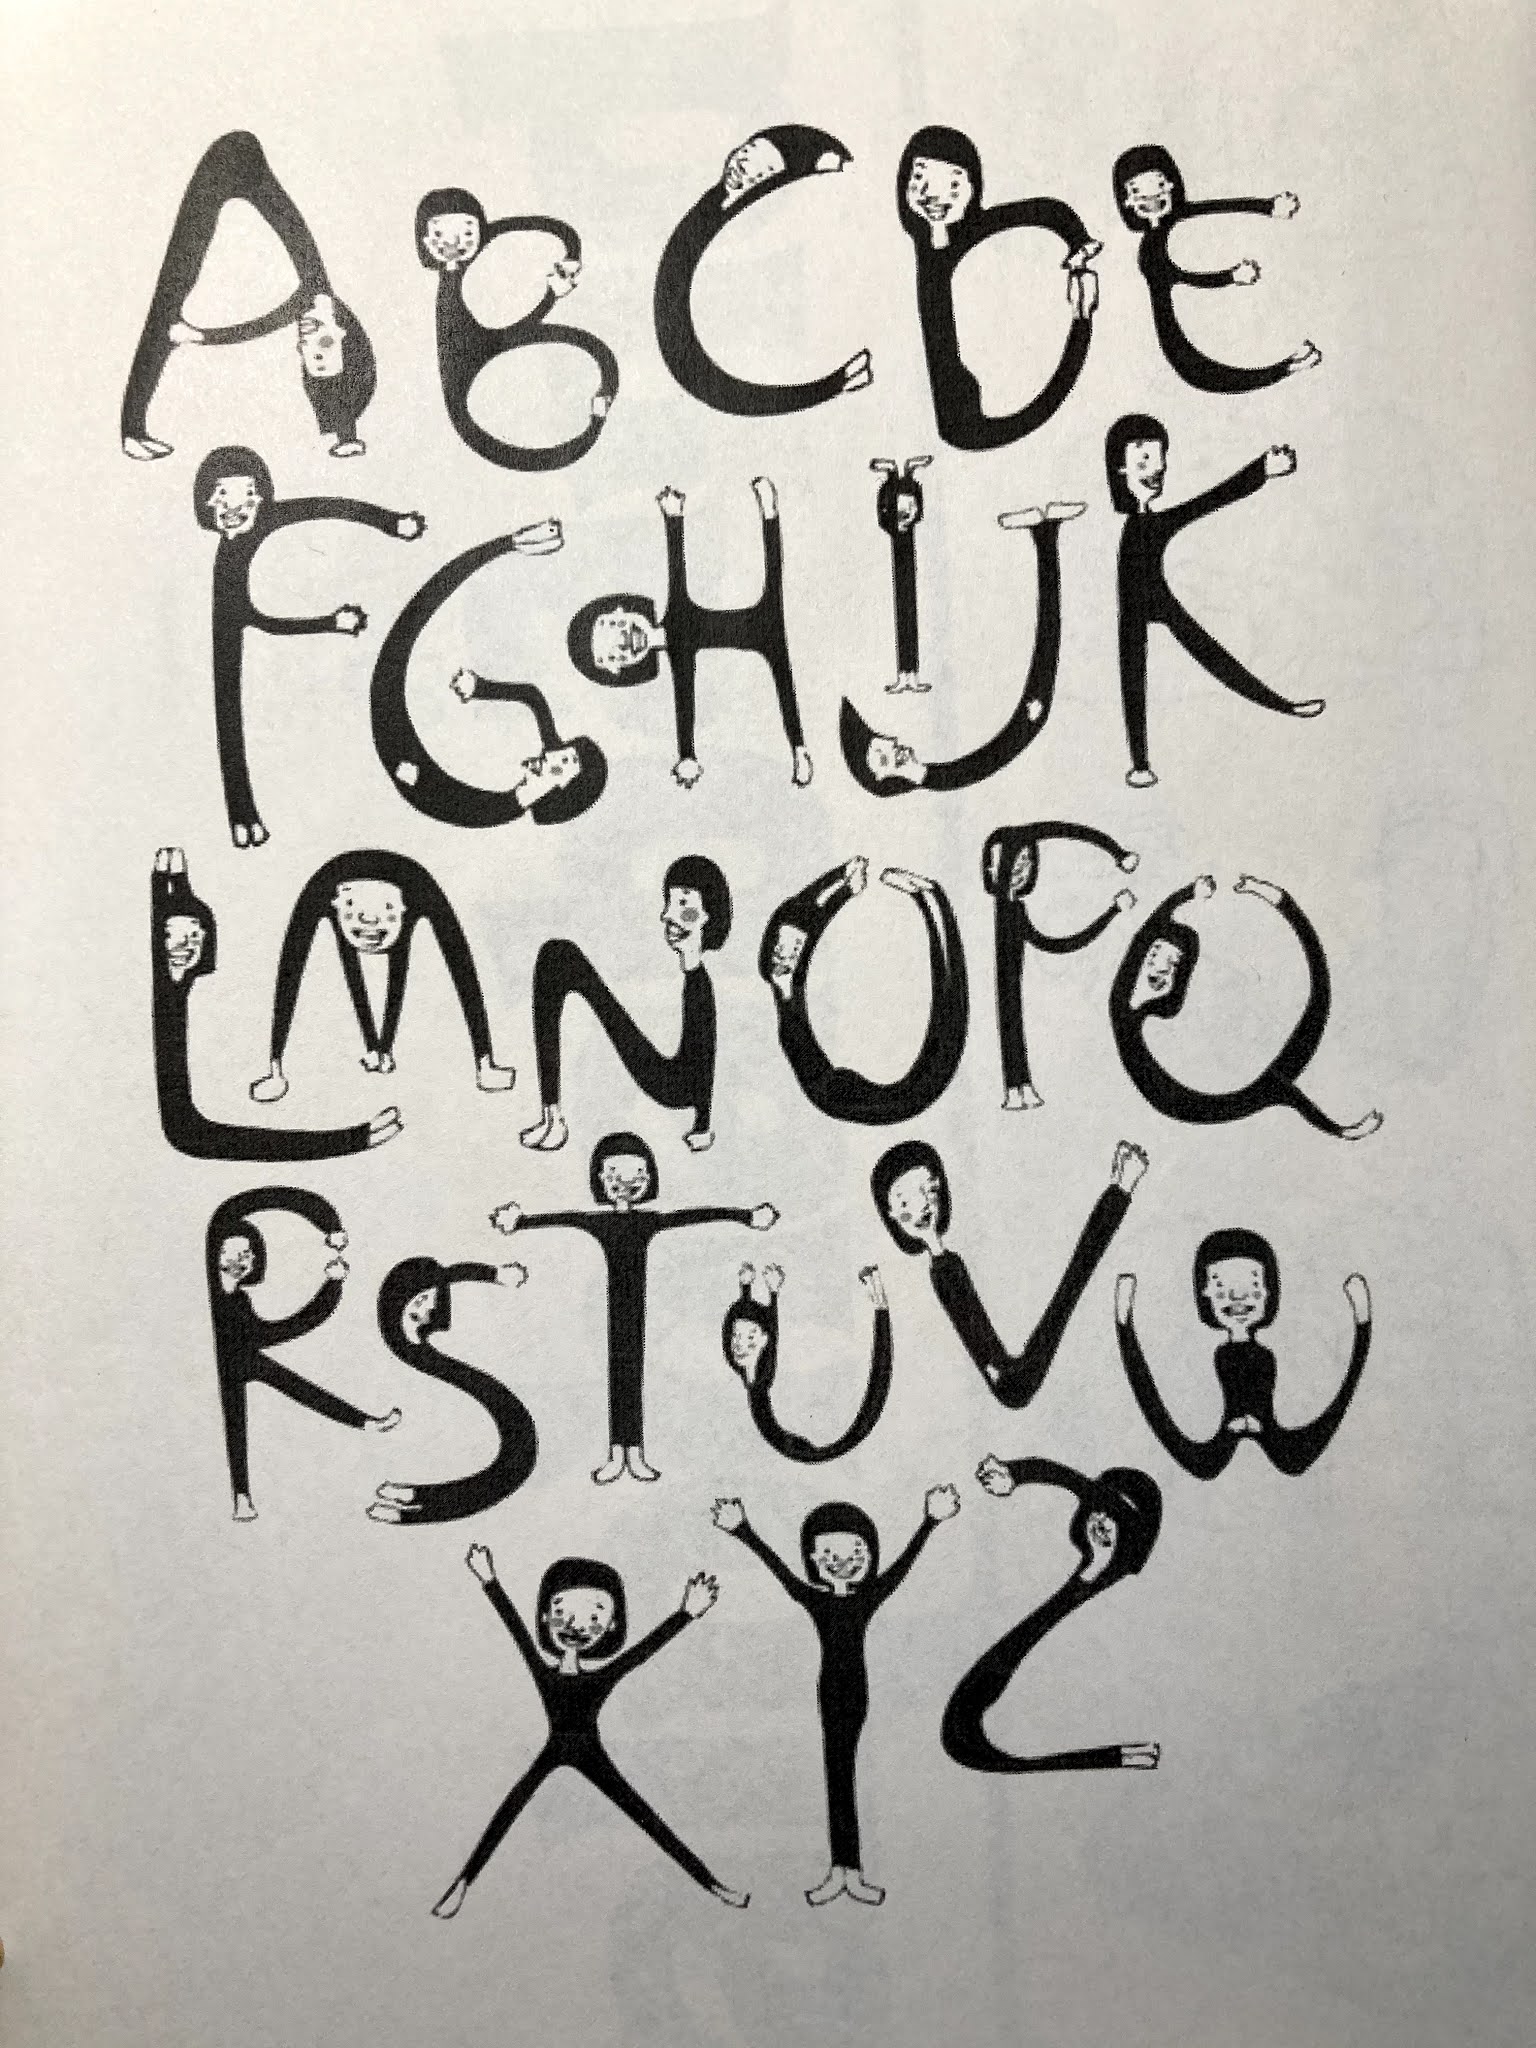 ABCDE
FGHIJK
LMNOPQ
RSTUVW
XYZ